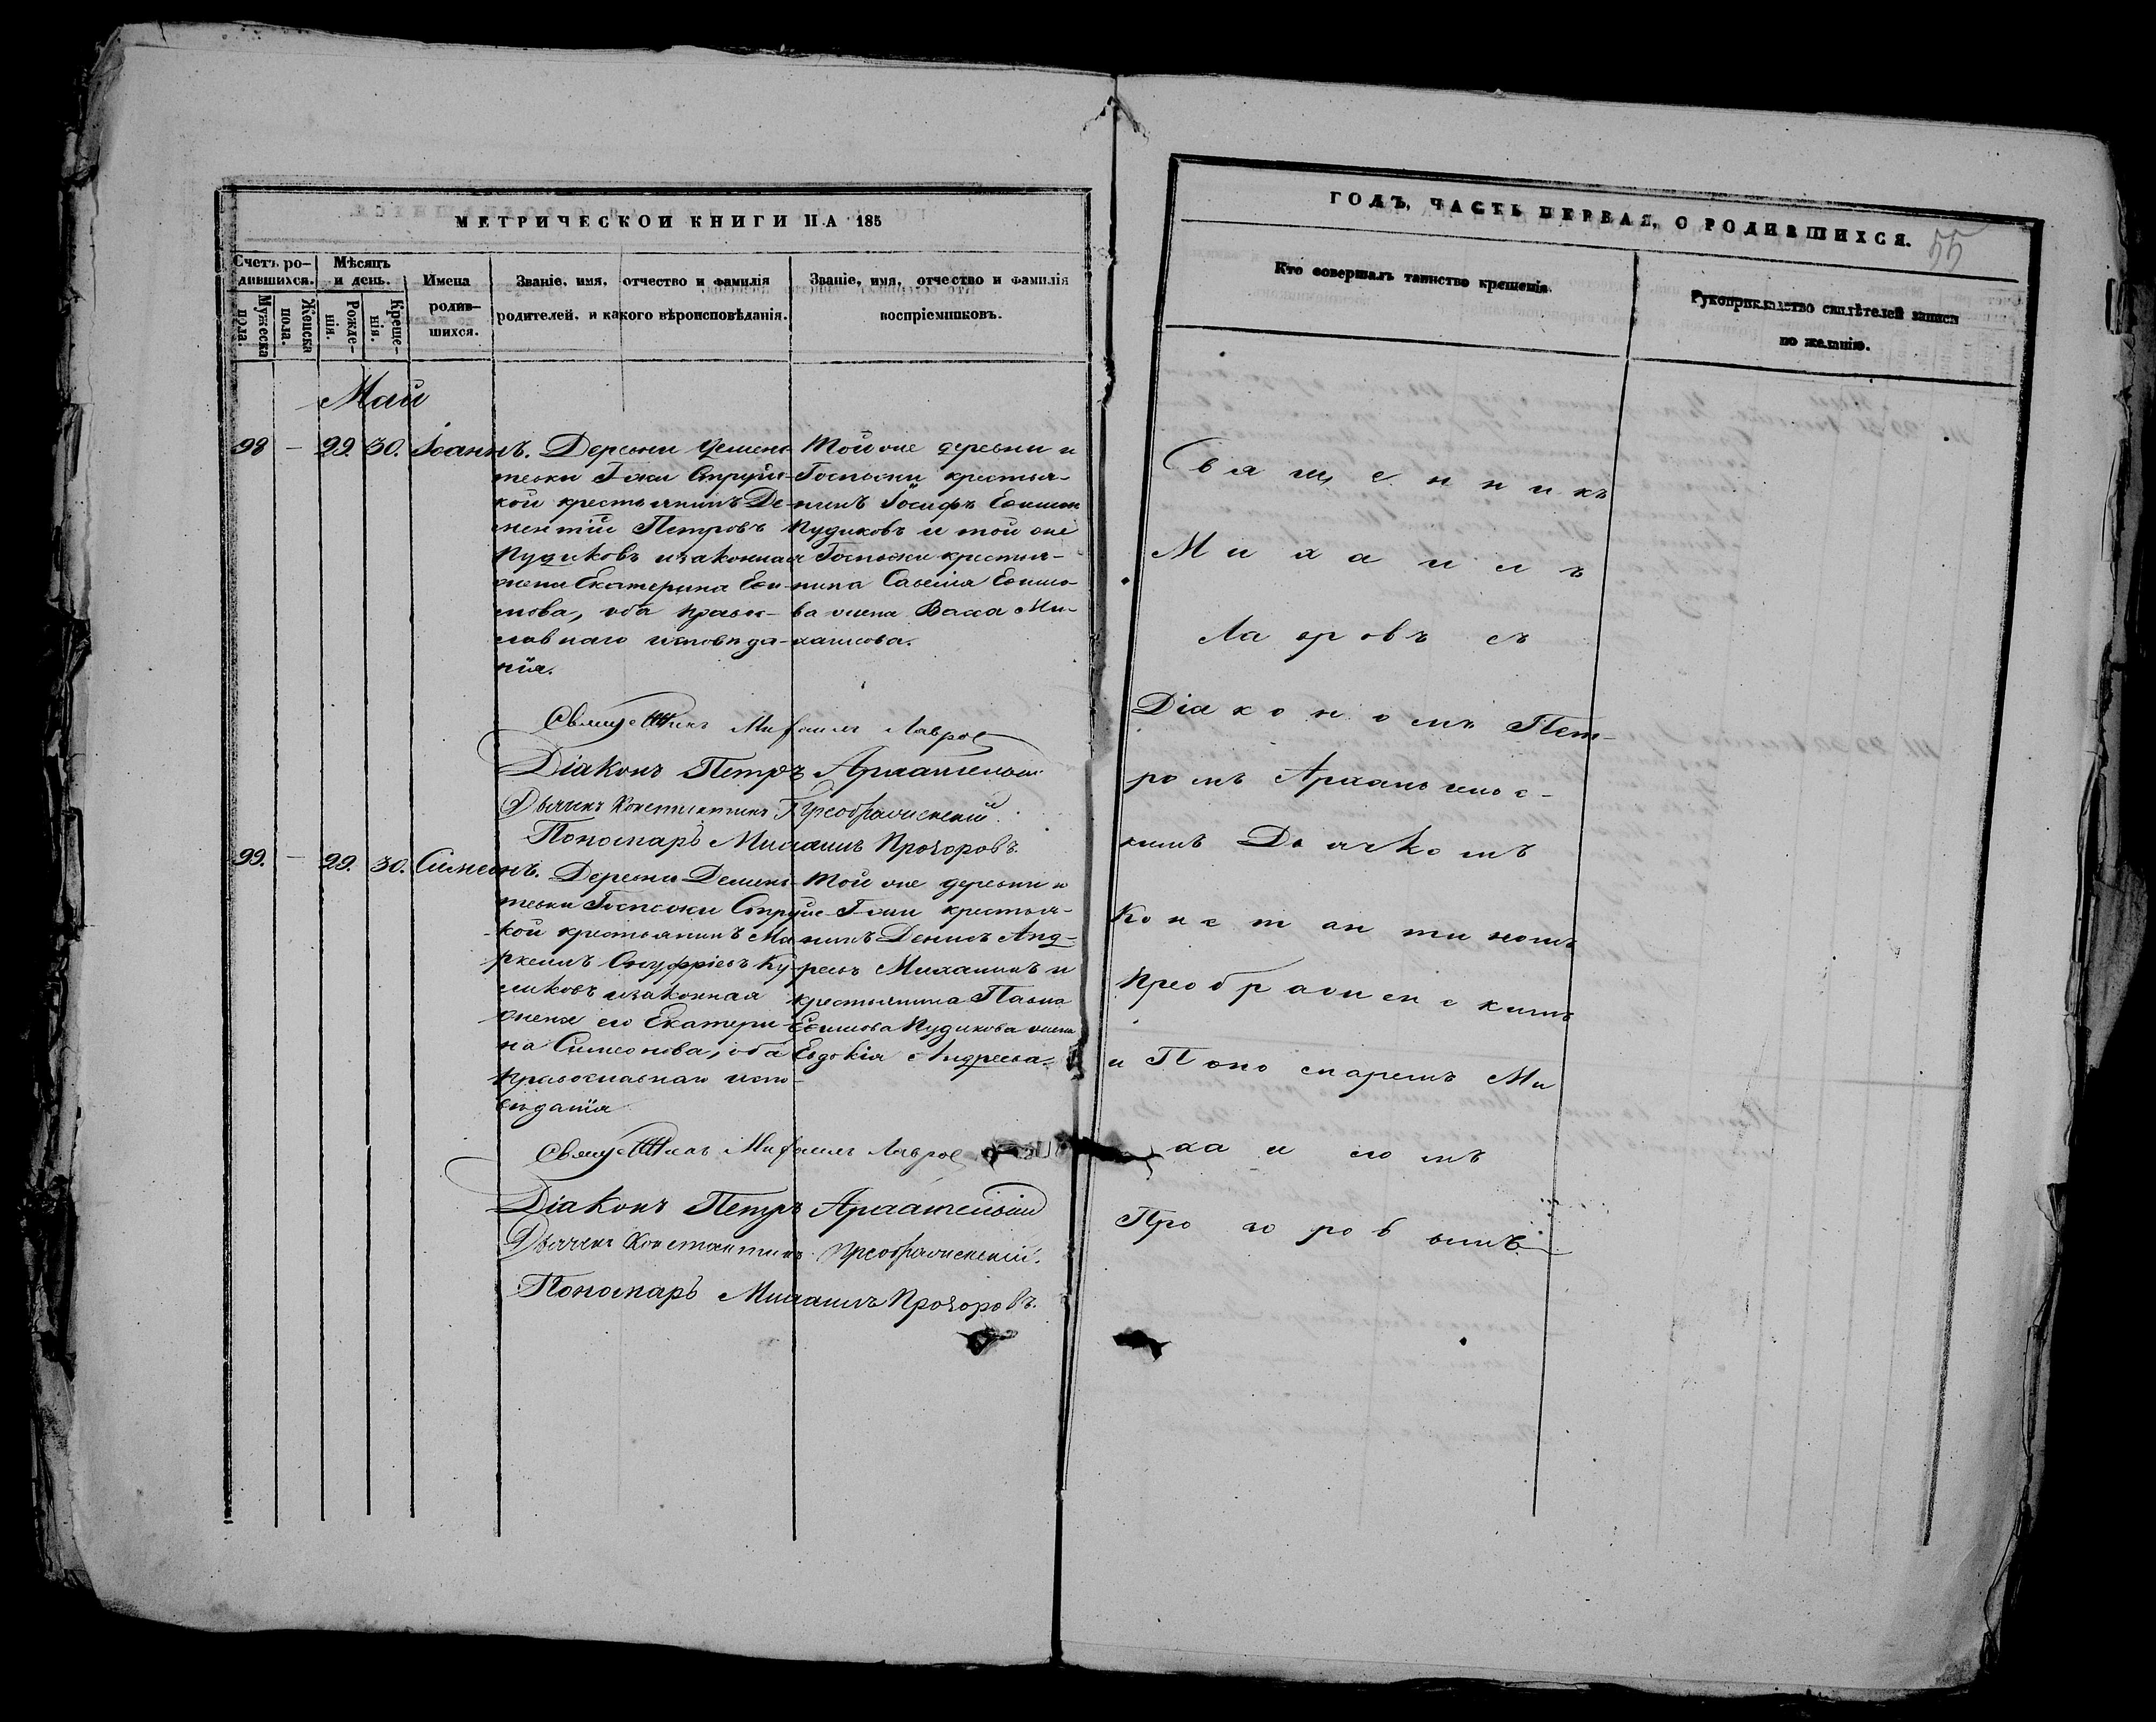 МЕТРИЧЕСКОЙ КНИГИ НА 185
Счетъ ро-
дившихся.
Мужеска
пола.
Женска
пола.
Мѣсяцъ
и день.
Рожде-
нія.
Креще-
нія.
Имена
родив-
шихся.
Званіе, имя, отчество и фамилія
родителей, и какого вѣроисповѣданія.
Званіе, имя, отчество и фамилія
воспріемниковъ.
Май
98 — 29. 30. Іоаннъ.
Деревни
тьевки Г-жи Струйс-
кой крестьянинъ Де-
ментій Петровъ
Пудиковъ и законная
жена Екатерина Ефи-
мова, оба право-
славнаго исповѣда-
нія.
Той же деревни и
Госпожи крестья-
нинъ Іосифъ Ефимов
Пудиковъ и той же
Госпожи крестья-
нина Савелія Ефимо-
ва жена Васса Ми-
хайлова.
Священникъ Михаилъ Лавровъ
Діаконъ Петръ Архангельскій
Дьячекъ Константинъ Преображенскій.
Пономарь Михаилъ Прохоровъ.
99. — 29. 30. Симеонъ.
Деревни Демен-
тьевки Госпожи Струйс-
кой крестьянинъ Ма-
ркеллъ Онуфріевъ Ку-
ликовъ и законная
жена его Екатери-
на Симеонова, оба
православнаго испо-
вѣданія
Той же деревни и
Г-жи крестья-
нинъ Денисъ Анд-
реевъ Михаилинъ и
крестьянина Павла
Ефимова Пудикова жена
Евдокія Андреева.
Священникъ Михаилъ Лавровъ
Діаконъ Петръ Архангельскій
Дьячекъ Константинъ Преображенскій.
Пономарь Михаилъ Прохоровъ.
ГОДЪ, ЧАСТЬ ПЕРВАЯ, О РОДИВШИХСЯ.
55
Кто совершалъ таинство крещенія.
Рукоприкладство свидѣтелей записи
по желанію.
Священникъ
Михаилъ
Лавровъ съ
Діакономъ Пет-
ромъ Архангельс-
кимъ Дьячкомъ
Константиномъ
Преображенскимъ
и Пономаремъ Ми
хаиломъ
Прохоровымъ